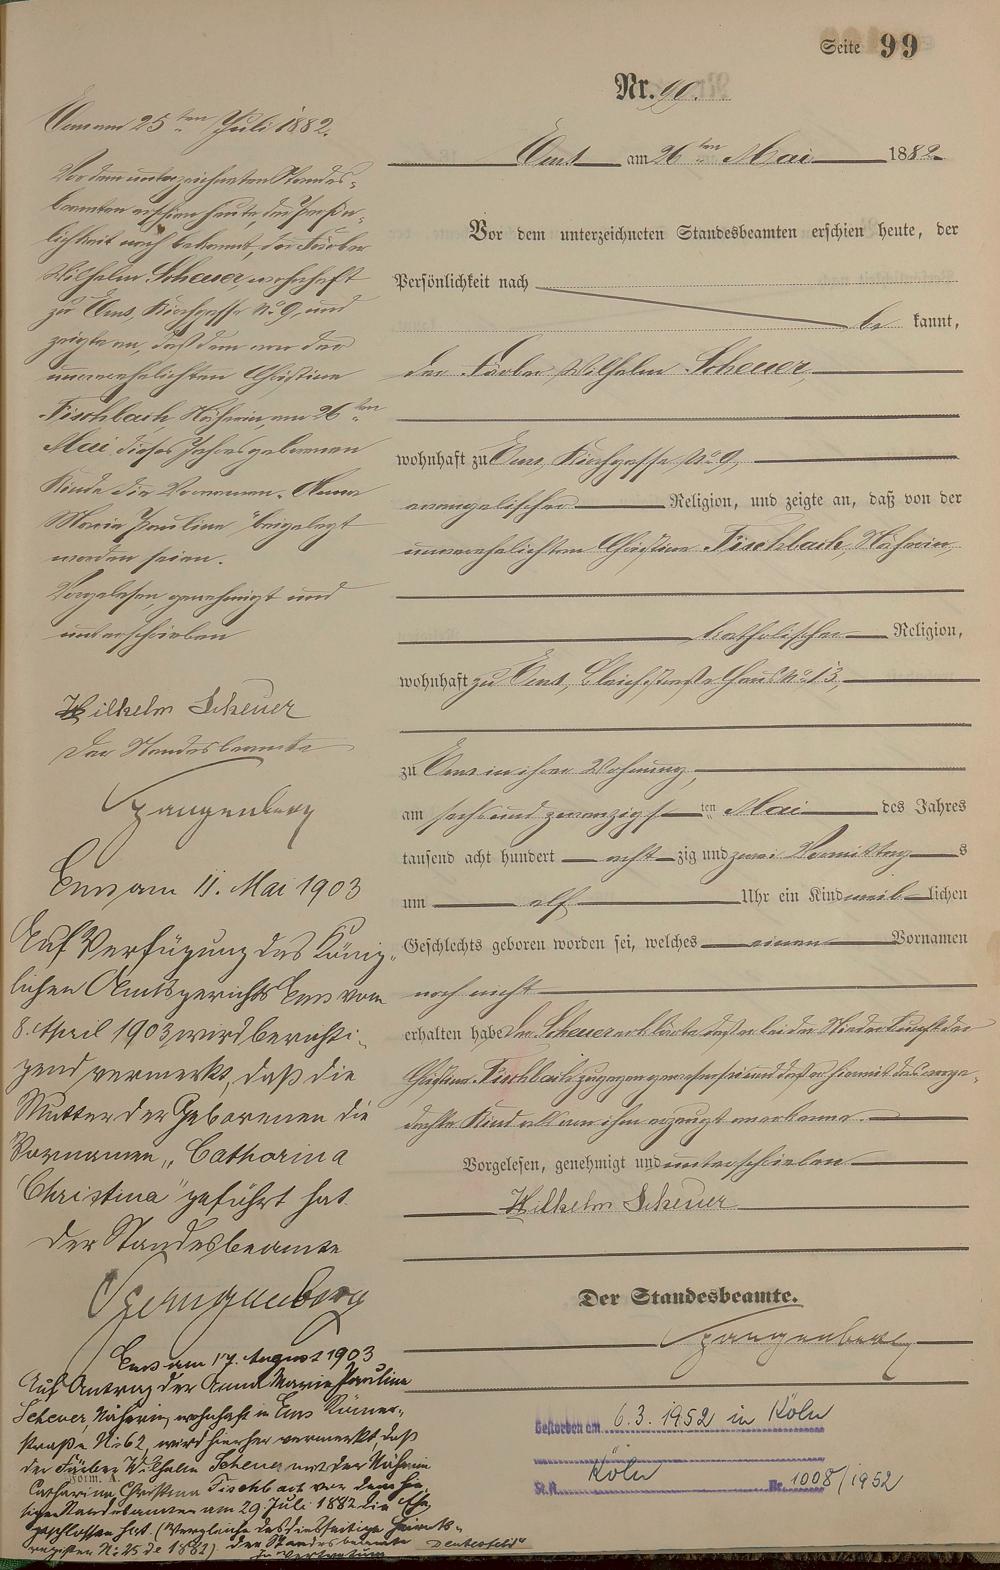 Seite 99
Nr. 99.
Ems am 26ten Mai 1882
Vor dem unterzeichneten Standesbeamten erschien heute, der
Persönlichkeit nach
be kannt,
der Färber Wilhelm Scheuer,
wohnhaft zu Ems, Kirchgasse No 9,
evangelischer Religion, und zeigte an, daß von der
unverehelichten Christine Fischbach, Näherin,
katholischer Religion,
wohnhaft zu Ems, Bleichstraße Haus No 13,
zu Ems in ihrer Wohnung,
am sechs und zwanzigsten Mai des Jahres
tausend acht hundert acht zig und zwei Vormittag s
um elf Uhr ein Kind weib lichen
Geschlechts geboren worden sei, welches einen Vornamen
noch nicht
erhalten habe Der Scheuer erklärte daß er bei der Niederkunft der
Christine Fischbach zugegen gewesen sei und daß er hiermit das ange-
dachte Kind als von ihm erzeugt anerkenne.
Vorgelesen, genehmigt und unterschrieben
Wilhelm Scheuer
Der Standesbeamte.
Spangenberg
Gestorben am 6.3.1952 in Köln
Köln
St.A. Nr. 1008/1952
Ems am 25ten Juli 1882.
Vor dem unterzeichneten Standes-
beamten erschien heute, der Persön-
lichkeit nach bekannt, der Färber
Wilhelm Scheuer, wohnhaft
zu Ems, Kirchgasse No 9, und
zeigte an, daß dem von der
unverehelichten Christine
Fischbach Näherin, am 26ten
Mai dieses Jahres geborenen
Kinde die Vornamen „Anna
Maria Paulina" beigelegt
worden seien.
Vorgelesen, genehmigt und
unterschrieben
Wilhelm Scheuer
Der Standesbeamte
Spangenberg
Ems am 11. Mai 1903
Auf Verfügung des König-
lichen Amtsgerichts Ems vom
8. April 1903 wird berichti-
gend vermerkt, daß die
Mutter der Geborenen die
Vornamen „Catharina
Christina" geführt hat.
Der Standesbeamte
Spangenberg
Ems am 17. August 1903
Auf Antrag der Anna Maria Paulina
Scheuer, Näherin, wohnhaft in Ems Römer-
straße No 62, wird hierher vermerkt, daß
der Färber Wilhelm Scheuer mit der Näherin
Form. A.
Catharina Christina Fischbach vor dem hie-
sigen Standesamte am 29. Juli 1882 die Ehe
geschlossen hat. (Vergleiche das diesseitige Heirats-
register No 25 de 1882) Der Standesbeamte
In Vertretung